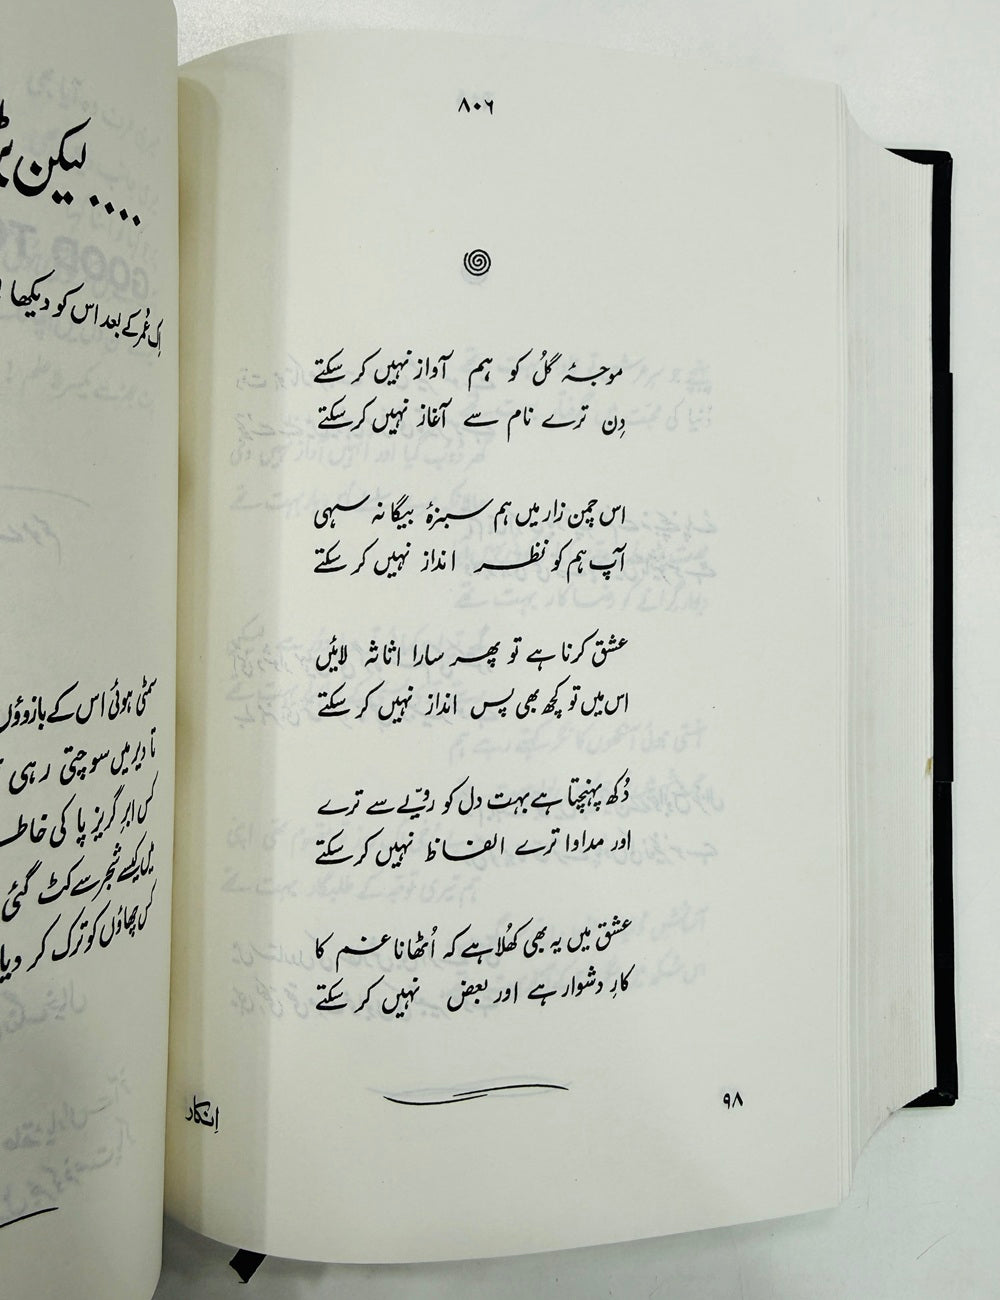 ۸۰۶
موجۂ گُل کو ہم آواز نہیں کر سکتے
دِن ترے نام سے آغاز نہیں کر سکتے
اس چمن زار میں ہم سبزۂ بیگانہ سہی
آپ ہم کو نظر انداز نہیں کر سکتے
عشق کرنا ہے تو پھر سارا اثاثہ لائیں
اس میں تو کچھ بھی پس انداز نہیں کر سکتے
دُکھ پہنچتا ہے بہت دل کو رویّے سے ترے
اور مداوا ترے الفاظ نہیں کر سکتے
عشق میں یہ بھی کھُلا ہے کہ اُٹھانا غم کا
کارِ دشوار ہے اور بعض نہیں کر سکتے
۹۸
اِنکار
.... لیکن
اِک عُمر کے بعد اس کو دیکھا
سمٹی ہوئی اس کے بازوؤں
تا دیر میں سوچتی رہی
کس ابرِ گریز پا کی خاطر
میں کیسے شجر سے کٹ گئی
کس چھاؤں کو ترک کر دیا